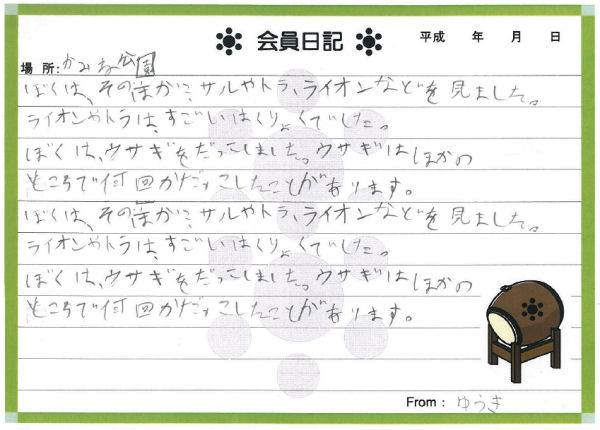 会員日記
平成 年 月 日
場所:かみね公園
ぼくは、そのほかに、サルやトラ、ライオンなどを見ました。
ライオンやトラは、すごいはくりょくでした。
ぼくは、ウサギをだっこしました。ウサギはほかの
ところで何回かだっこしたことがあります。
ぼくは、そのほかに、サルやトラ、ライオンなどを見ました。
ライオンやトラは、すごいはくりょくでした。
ぼくは、ウサギをだっこしました。ウサギはほかの
ところで何回かだっこしたことがあります。
From: ゆうき